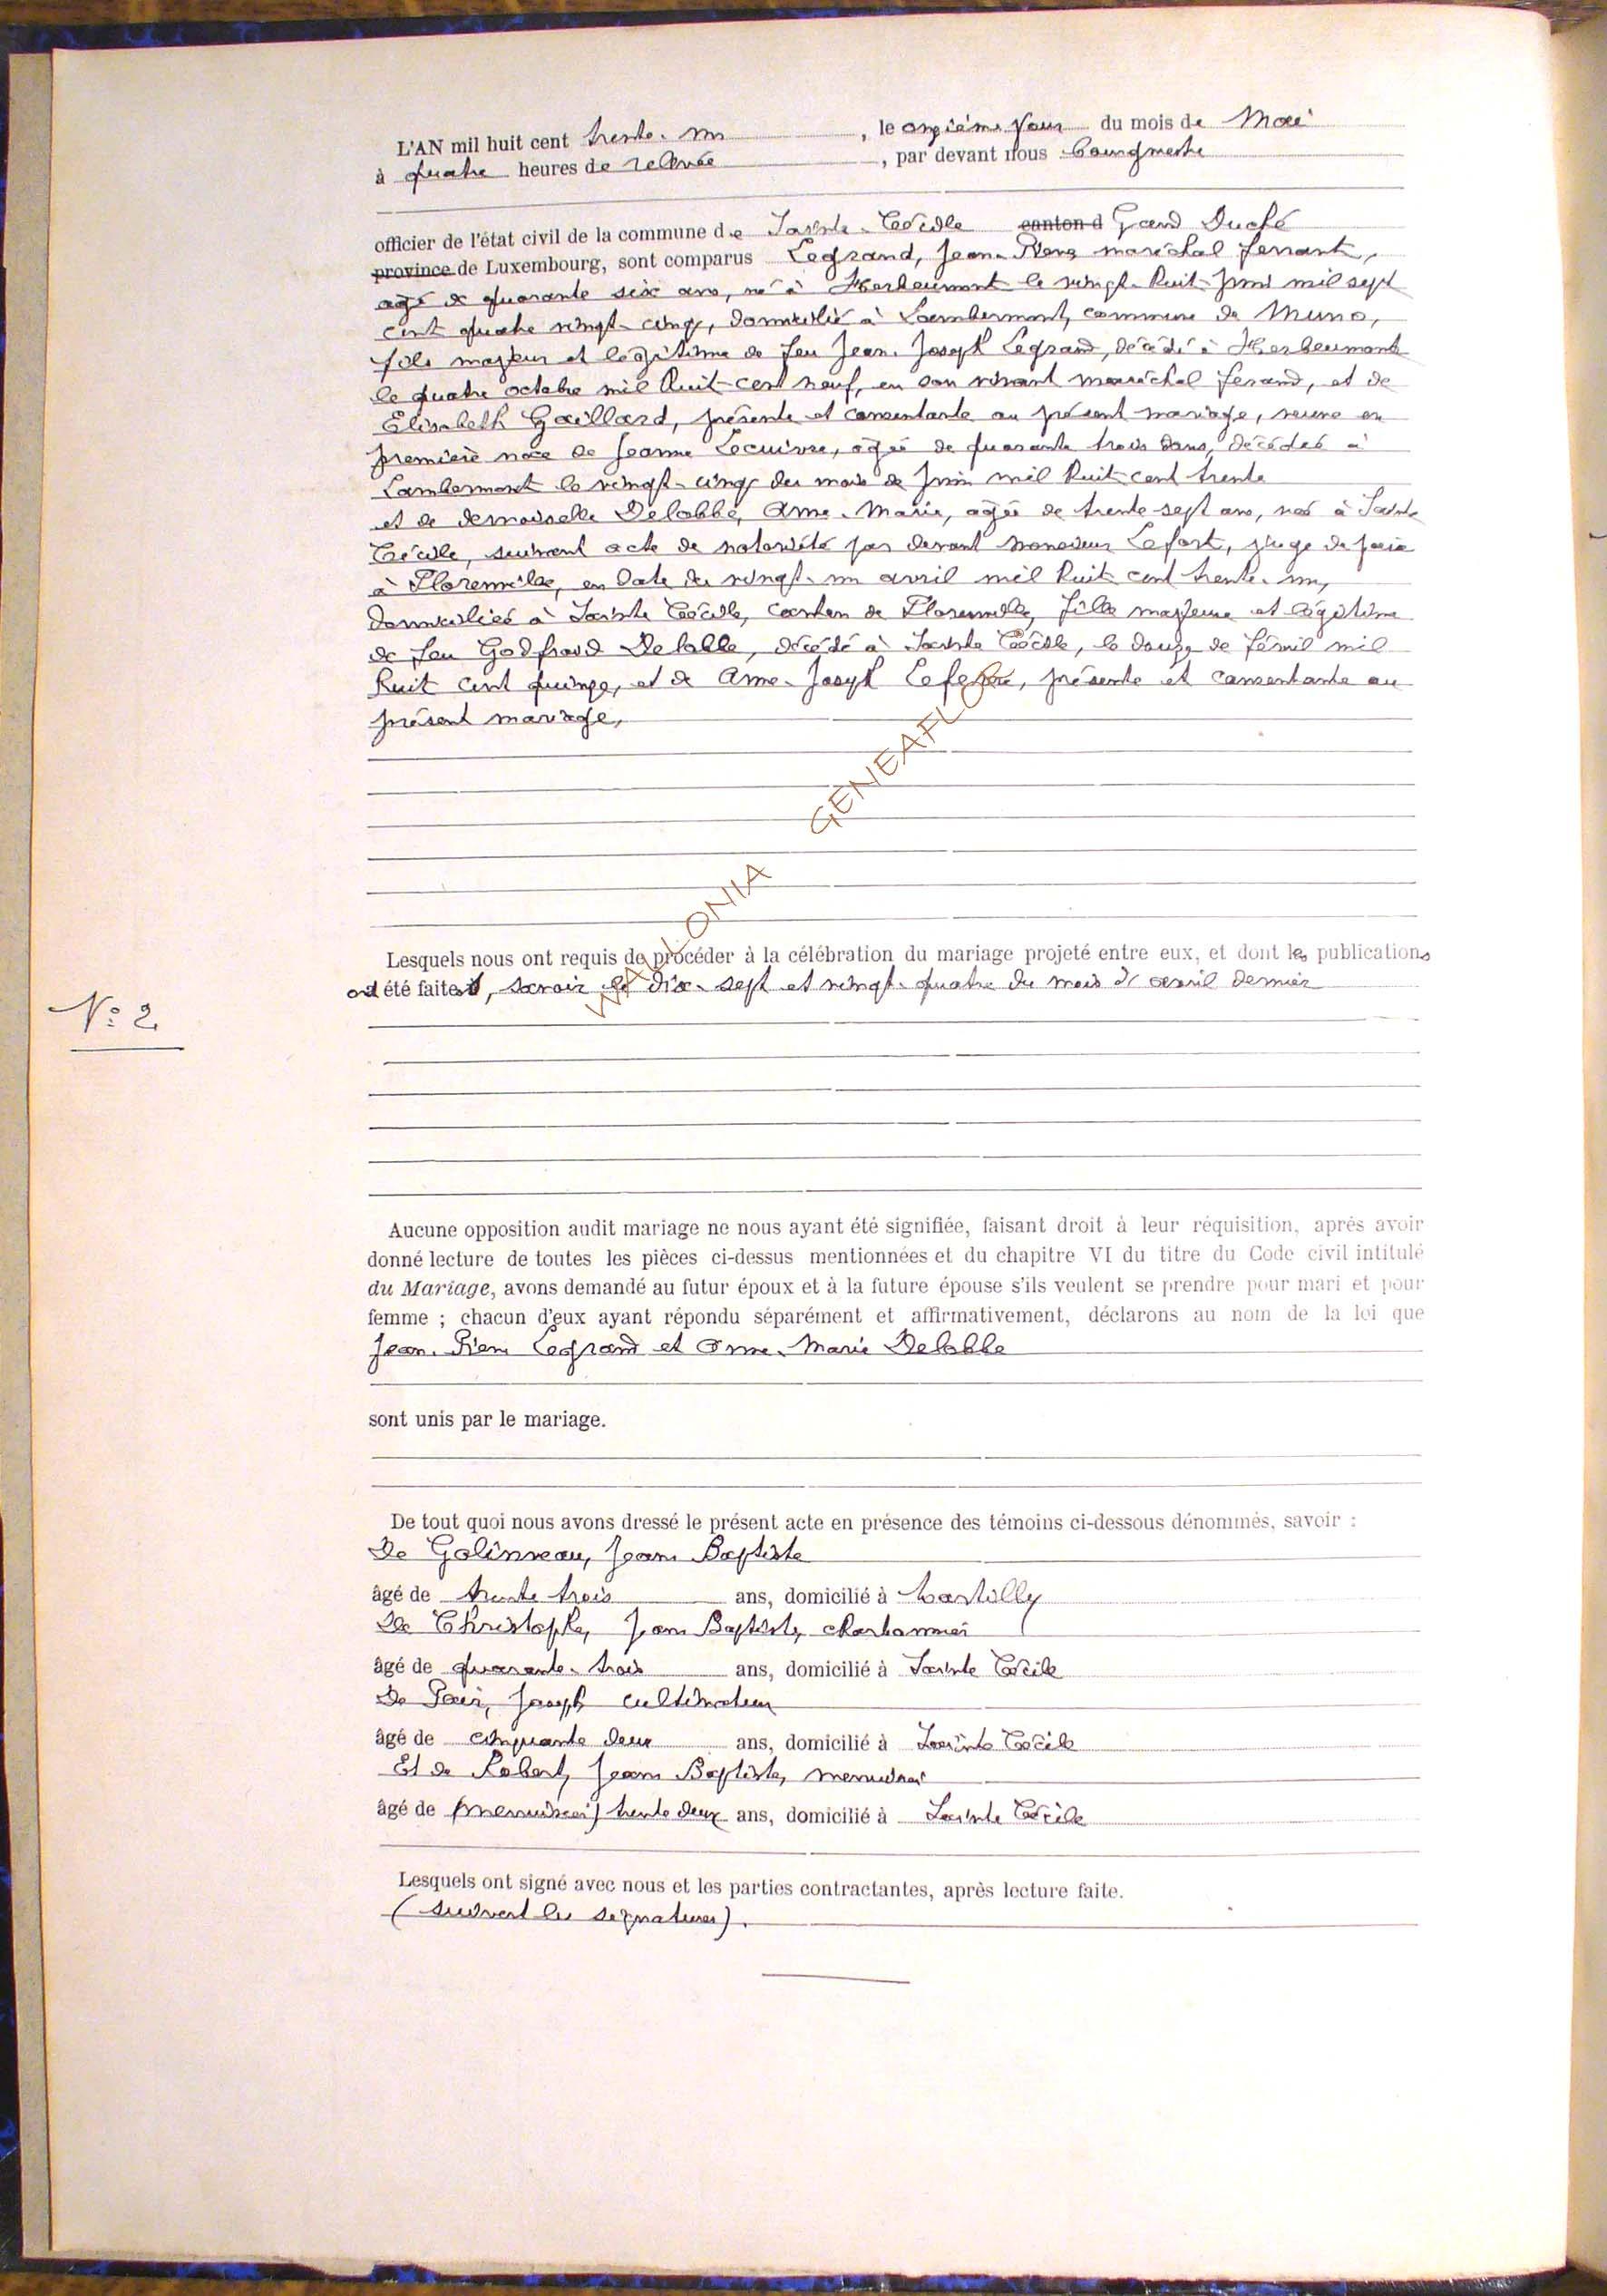 L'AN mil huit cent trente-un, le onzième jour du mois de Mai
à quatre heures de relevée, par devant nous bourgmestre
officier de l'état civil de la commune de Sainte-Cécile canton d Grand Duché
province de Luxembourg, sont comparus Legrand, Jean-Pierre maréchal ferrant,
agé de quarante six ans, né à Herbeumont le vingt-huit juin mil sept
cent quatre vingt-cinq, domicilié à Lambermont, commune de Muno,
fils majeur et légitime de feu Jean-Joseph Legrand, décédé à Herbeumont
le quatre octobre mil huit cent neuf, en son vivant maréchal ferand, et de
Elisabeth Gaillard, présente et consentante au présent mariage, veuve en
première noce de Jeanne Lecuivre, agée de quarante trois ans, décédée à
Lambermont le vingt-cinq du mois de juin mil huit cent trente
et de demoiselle Delabbe, Anne-Marie, agée de trente sept ans, née à Sainte
Cécile, suivant acte de notoriété par devant monsieur Lefort, juge de paix
à Florenville, en date du vingt-un avril mil huit cent trente-un,
domiciliée à Sainte Cécile, canton de Florenville, fille majeure et légitime
de feu Godfroid Delabbe, décédé à Sainte Cécile, le douze de février mil
huit cent quinze, et de Anne-Joseph Lefevre, présente et consentante au
présent mariage,
WALLONIA GENEAFLOR
Lesquels nous ont requis de procéder à la célébration du mariage projeté entre eux, et dont les publications
ont été faites, savoir le dix-sept et vingt-quatre du mois d'avril dernier
N° 2
Aucune opposition audit mariage ne nous ayant été signifiée, faisant droit à leur réquisition, après avoir
donné lecture de toutes les pièces ci-dessus mentionnées et du chapitre VI du titre du Code civil intitulé
du Mariage, avons demandé au futur époux et à la future épouse s'ils veulent se prendre pour mari et pour
femme ; chacun d'eux ayant répondu séparément et affirmativement, déclarons au nom de la loi que
Jean-Pierre Legrand et Anne-Marie Delabbe
sont unis par le mariage.
De tout quoi nous avons dressé le présent acte en présence des témoins ci-dessous dénommés, savoir :
De Golinveau, Jean Baptiste
âgé de trente trois ans, domicilié à Martilly
De Christophe, Jean Baptiste, charbonnier
âgé de quarante-trois ans, domicilié à Sainte Cécile
De Pair, Joseph cultivateur
âgé de cinquante deux ans, domicilié à Sainte Cécile
Et de Robert, Jean Baptiste, menuisier
âgé de (menuisier) trente deux ans, domicilié à Sainte Cécile
Lesquels ont signé avec nous et les parties contractantes, après lecture faite.
(suivent les signatures).